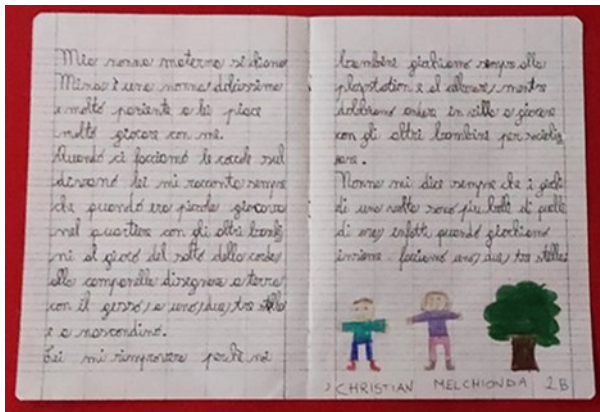 Mia nonna materna si chiama
Mina è una nonna dolcissima
e molto paziente a lei piace
molto giocare con me.
Quando ci facciamo le coccole sul
divano lei mi racconta sempre
che quando era piccola giocava
nel quartiere con gli altri bambi
ni al gioco del salto della corda,
alla campanella disegnare a terra
con il gesso, a uno, due, tre stella
e a nascondino.
Lei mi rimprovera perché noi
bambini giochiamo sempre alla
playstation e al cellulare, mentre
dobbiamo andare in villa a giocare
con gli altri bambini per socializ
zare.
Nonna mi dice sempre che i giochi
di una volta sono più belli di quelli
di ora, infatti quando giochiamo
insieme facciamo uno, due, tre stella
CHRISTIAN MELCHIONDA 2B